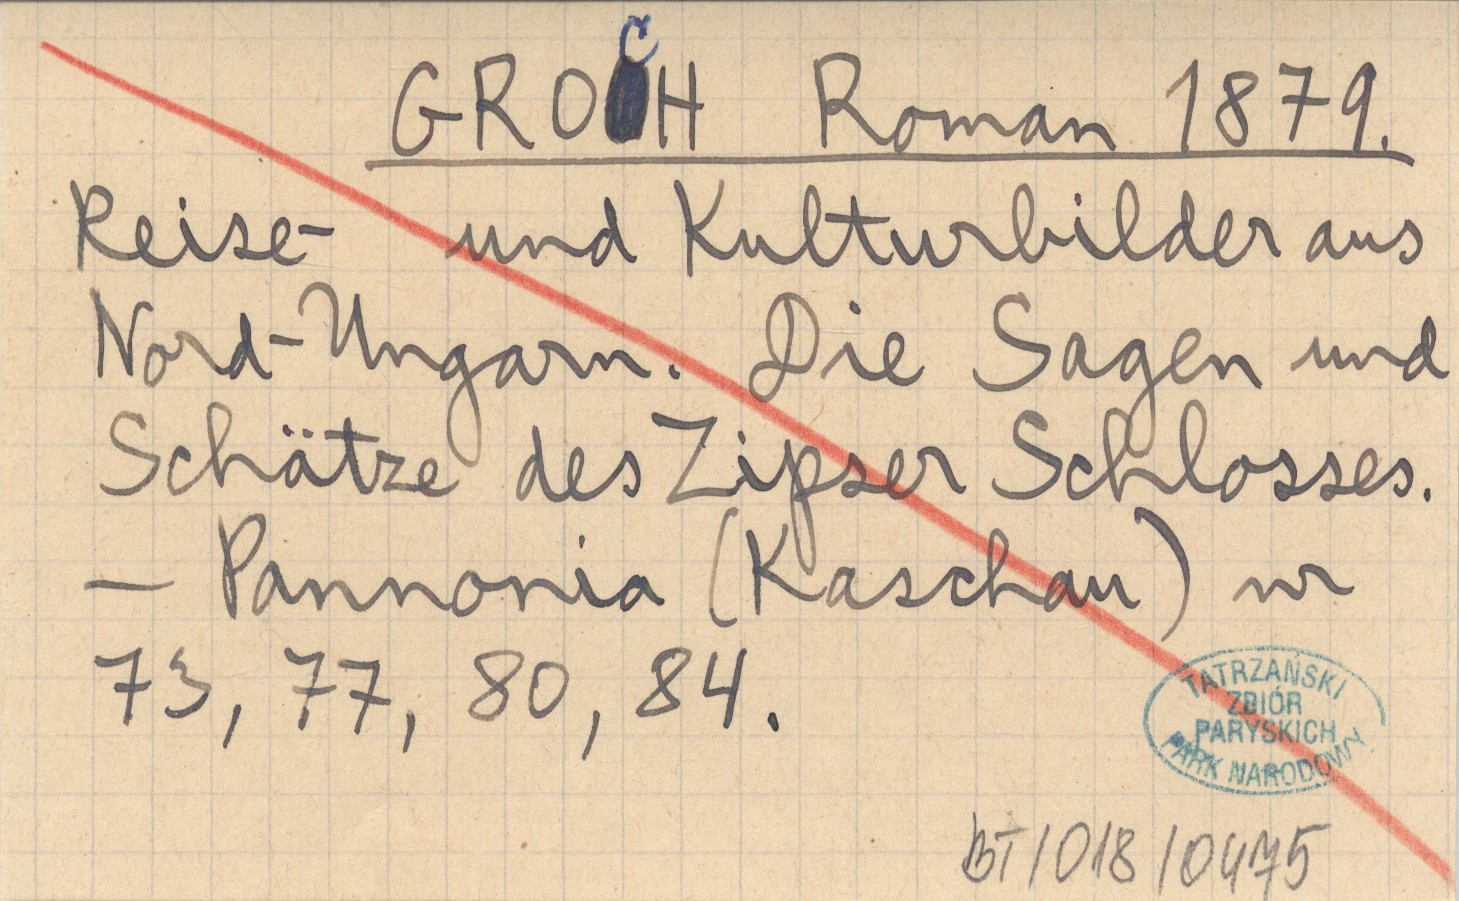 GROCH Roman 1879.
Reise- und Kulturbilder aus
Nord-Ungarn. Die Sagen und
Schätze des Zipser Schlosses.
— Pannonia (Kaschau) nr
73, 77, 80, 84.
TATRZAŃSKI
ZBIÓR
PARYSKICH
PARK NARODOWY
BT/018/0475